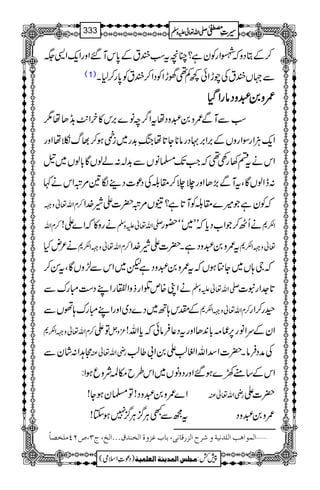 سیرتِ مصطفی صلی اللہ تعالیٰ علیہ وسلم 333
کرکے بتا دو کہ شہسوار کون ہے؟ چنانچہ یہ سب خندق کے پاس آ گئے اور ایک ایسی جگہ
سے جہاں خندق کی چوڑائی کچھ کم تھی گھوڑا کودا کر خندق کو پار کر لیا۔(۱)
عمرو بن عبدود مارا گیا
سب سے آگے عمرو بن عبدود تھا یہ اگرچہ نوے برس کا خرانٹ بڈھا تھا مگر
ایک ہزار سواروں کے برابر بہادر مانا جاتا تھا جنگ بدر میں زخمی ہو کر بھاگ نکلا تھا اور
اس نے یہ قسم کھا رکھی تھی کہ جب تک مسلمانوں سے بدلہ نہ لے لوں گا بالوں میں تیل
نہ ڈالوں گا، یہ آگے بڑھا اور چلا چلا کر مقابلہ کی دعوت دینے لگا تین مرتبہ اس نے کہا
کہ کون ہے جو میرے مقابلہ کو آتا ہے؟ تینوں مرتبہ حضرت علی شیر خدا کرم اللہ تعالیٰ وجہہ
الکریم نے اُٹھ کر جواب دیا کہ ’’میں‘‘ حضور صلی اللہ تعالیٰ علیہ وسلم نے روکا کہ اے علی! کرم اللہ
تعالیٰ وجہہ الکریم یہ عمرو بن عبدود ہے۔ حضرت علی شیر خدا کرم اللہ تعالیٰ وجہہ الکریم نے عرض کیا
کہ جی ہاں میں جانتا ہوں کہ یہ عمرو بن عبدود ہے لیکن میں اس سے لڑوں گا، یہ سن کر
تاجدار نبوت صلی اللہ تعالیٰ علیہ وسلم نے اپنی خاص تلوار ذوالفقار اپنے دست مبارک سے
حیدر کرار کرم اللہ تعالیٰ وجہہ الکریم کے مقدس ہاتھ میں دے دی اور اپنے مبارک ہاتھوں سے
ان کے سر انور پر عمامہ باندھا اور یہ دعا فرمائی کہ یا اللہ! عزوجل تو علی کرم اللہ تعالیٰ وجہہ الکریم
کی مدد فرما۔ حضرت اسد اللہ الغالب علی بن ابی طالب رضی اللہ تعالیٰ عنہ مجاہدانہ شان سے
اس کے سامنے کھڑے ہو گئے اور دونوں میں اس طرح مکالمہ شروع ہوا:
حضرت علی رضی اللہ تعالیٰ عنہ اے عمرو بن عبدود! تو مسلمان ہو جا!
عمرو بن عبدود یہ مجھ سے کبھی ہرگز ہرگز نہیں ہو سکتا!
المواھب اللدنیۃ و شرح الزرقانی، باب غزوۃ الخندق...الخ، ج۳،ص۴۲ملخصاً
پیش کش: مجلس المدینۃ العلمیۃ (دعوتِ اسلامی)